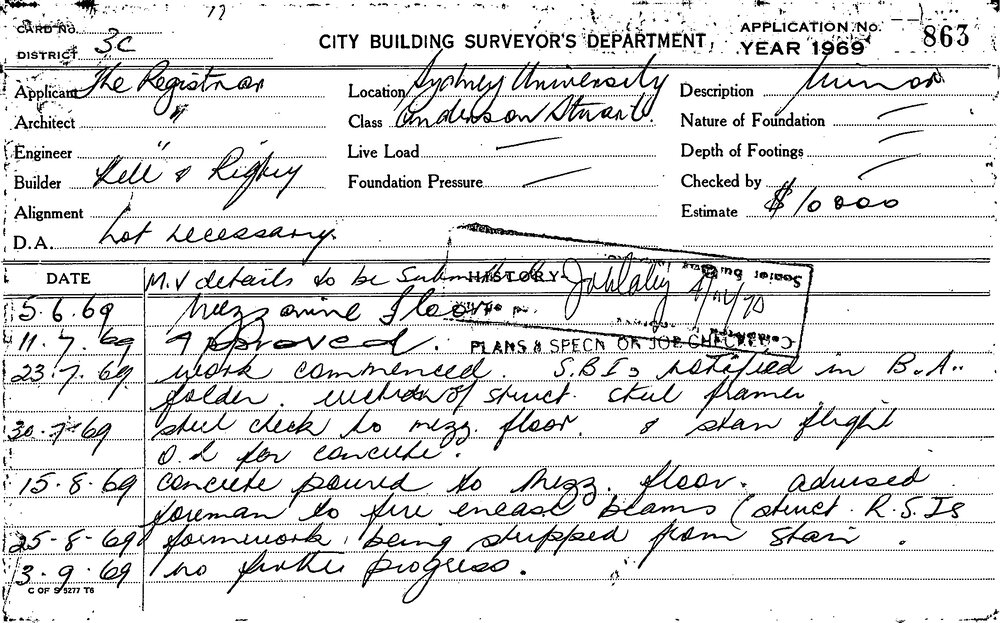 CARD No.
DISTRICT 3C
CITY BUILDING SURVEYOR'S DEPARTMENT
APPLICATION No. 863
YEAR 1969
Applicant The Registrar
Location Sydney University
Description Minor
Architect "
Class Anderson Stuart
Nature of Foundation —
Engineer "
Live Load —
Depth of Footings —
Builder Kell & Rigby
Foundation Pressure —
Checked by —
Alignment
Estimate $10000
D.A. not necessary.
DATE
HISTORY
M.V details to be submitted
5.6.69 Mezzanine floor
11.7.69 Approved.
PLANS & SPECN ON JOB CHECKED
23.7.69 work commenced. S.B.I. notified in B.A.
folder. erection of struct. steel frames
30.7.69 steel check to mezz. floor. & stair flight
O.K for concrete.
15.8.69 concrete poured to mezz. floor. advised
foreman to fire encase beams (struct. R.S.Js
25-8-69 formwork being stripped from stair.
3.9.69 no further progress.
C OF S 5277 T6